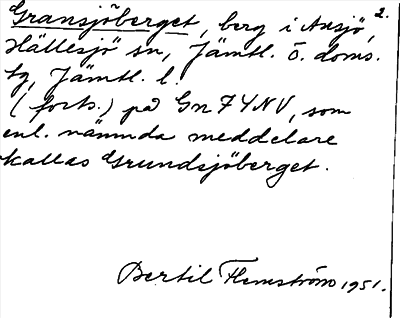 2.
Gransjöberget, berg i Ansjö,
Hällesjö sn, Jämtl. ö. doms.
tg, Jämtl. l.
(forts.) på Gn 7 Y NV, som
enl. nämnda meddelare
kallas Grundsjöberget.
Bertil Flemström 1951.